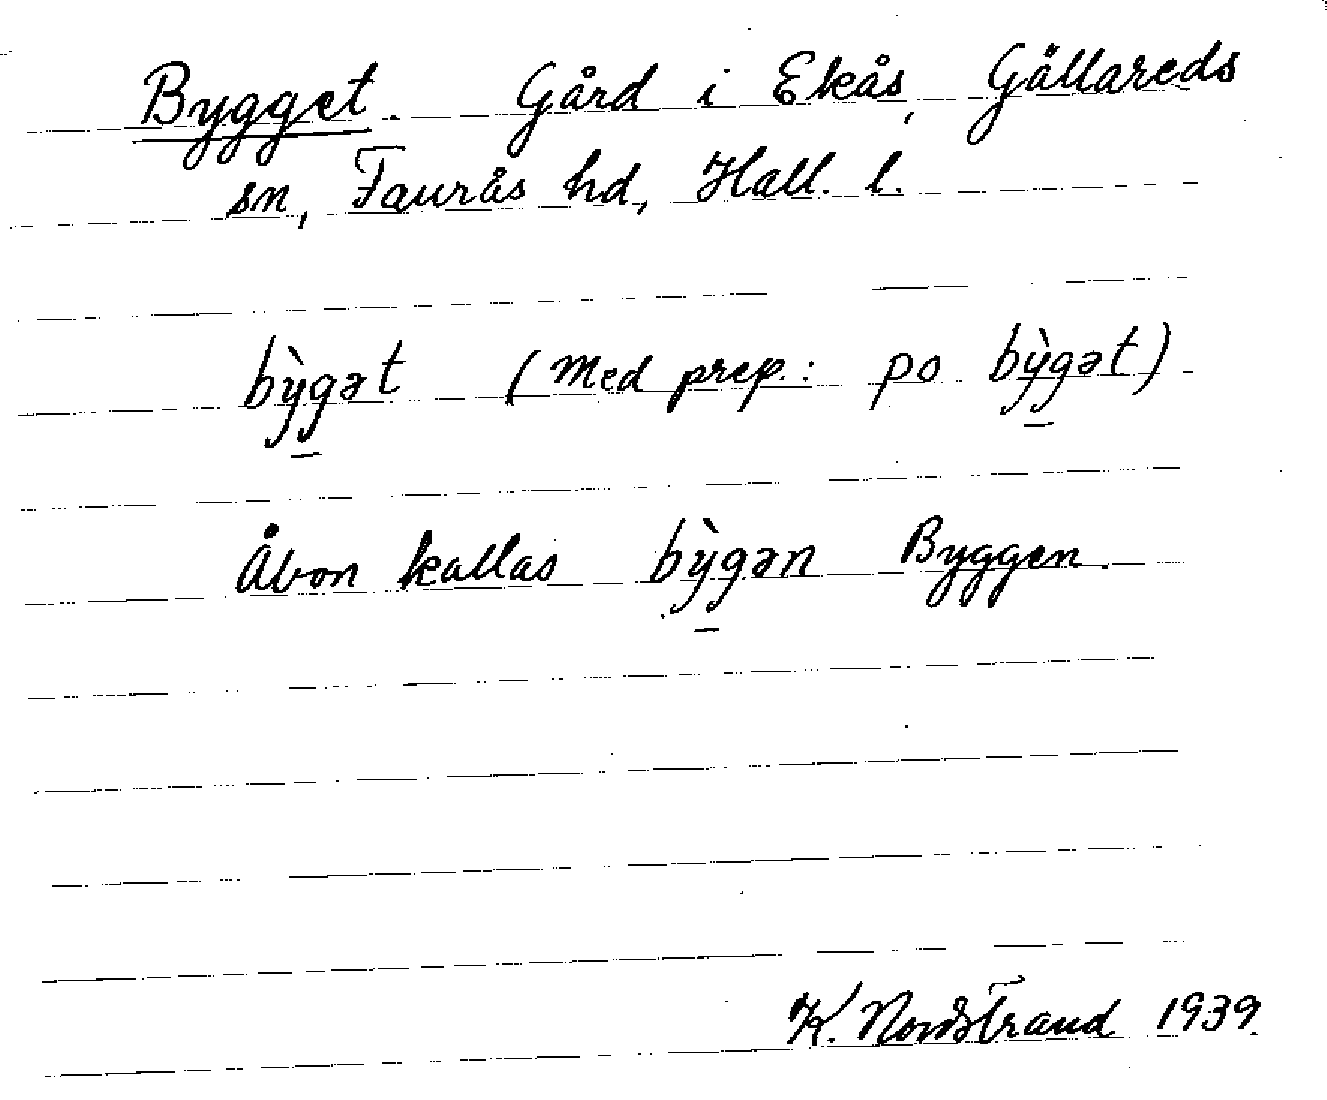 Bygget. Gård i Ekås, Gällareds
sn, Faurås hd, Hall. l.
bỳg̲ət (Med prep.: po bỳg̲ət)
Åbon kallas bỳg̲ən Byggen.
K. Nordstrand 1939